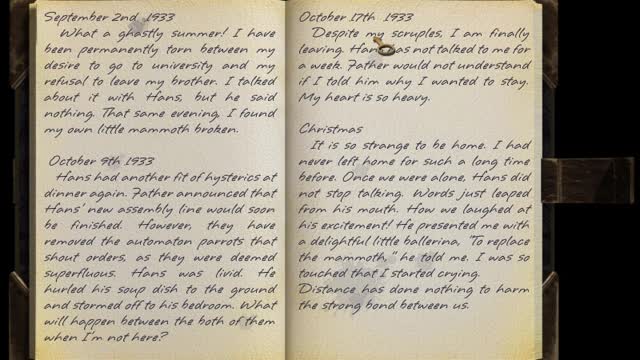 September 2nd 1933
What a ghastly summer! I have
been permanently torn between my
desire to go to university and my
refusal to leave my brother. I talked
about it with Hans, but he said
nothing. That same evening, I found
my own little mammoth broken.
October 9th 1933
Hans had another fit of hysterics at
dinner again. Father announced that
Hans' new assembly line would soon
be finished. However, they have
removed the automaton parrots that
shout orders, as they were deemed
superfluous. Hans was livid. He
hurled his soup dish to the ground
and stormed off to his bedroom. What
will happen between the both of them
when I'm not here?
October 17th 1933
Despite my scruples, I am finally
leaving. Hans has not talked to me for
a week. Father would not understand
if I told him why I wanted to stay.
My heart is so heavy.
Christmas
It is so strange to be home. I had
never left home for such a long time
before. Once we were alone, Hans did
not stop talking. Words just leaped
from his mouth. How we laughed at
his excitement! He presented me with
a delightful little ballerina, "To replace
the mammoth," he told me. I was so
touched that I started crying.
Distance has done nothing to harm
the strong bond between us.